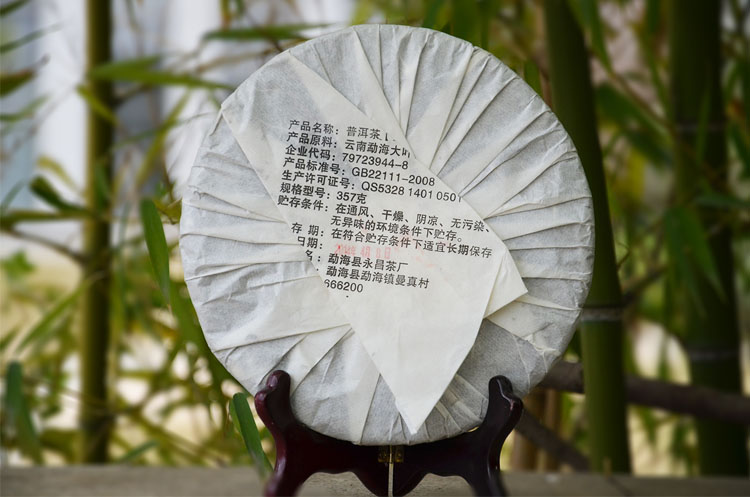 产品名称： 普洱茶
产品原料： 云南勐海大叶
企业代码： 79723944-8
产品标准号： GB22111-2008
生产许可证号： QS5328 1401 0501
规格型号： 357克
贮存条件： 在通风、干燥、阴凉、无污染、
无异味的环境条件下贮存。
存 期： 在符合贮存条件下适宜长期保存
日期：
名： 勐海县永昌茶厂
勐海县勐海镇曼真村
666200